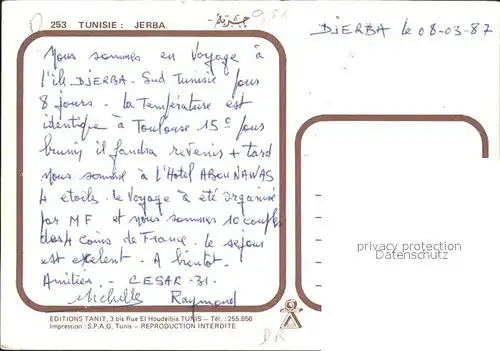 253 TUNISIE : JERBA جربة
DJERBA le 08-03-87
Nous sommes en voyage à
l'île DJERBA. Sud Tunisie pour
8 jours. la Température est
identique à Toulouse 15° pour
brunir il faudra revenir + tard
nous sommes à l'Hotel ABOU NAWAS
4 étoiles. le voyage à été organisé
par MF et nous sommes 10 couples
des 4 coins de France. le séjour
est exelent. A bientot.
Amitiés. CESAR-31.
Michelle Raymond
privacy protection
Datenschutz
EDITIONS TANIT, 3 bis Rue El Houdeibia TUNIS - Tél. : 255.856
Impression : S.P.A.G, Tunis - REPRODUCTION INTERDITE
DR